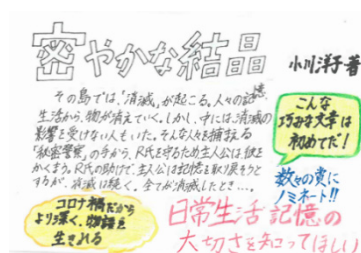 密やかな結晶
小川洋子著
その島では、「消滅」が起こる。人々の記憶、
生活から、物が消えていく。しかし、中には、消滅の
影響を受けない人もいた。そんな人々を捕える
「秘密警察」の手から、R氏を守るため主人公は彼を
かくまう。R氏の助けで、主人公は記憶を取り戻そうと
するが、消滅は続く。全てが消滅したとき…。
こんな
巧みな文章は
初めてだ!
数々の賞に
ノミネート!!
コロナ禍だから
より深く、物語を
生きれる
日常生活記憶の
大切さを知ってほしい